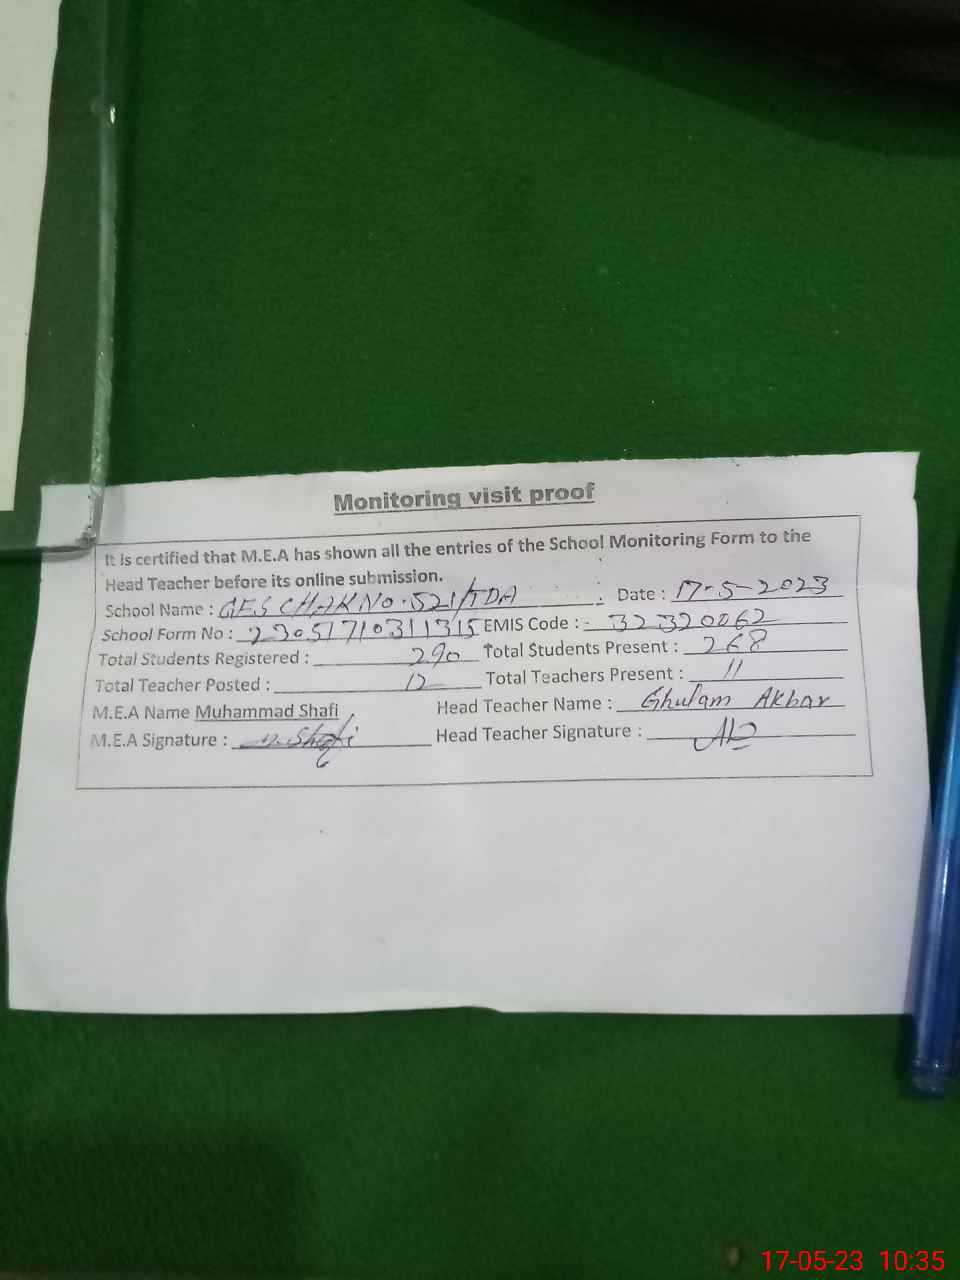 Monitoring visit proof
It is certified that M.E.A has shown all the entries of the School Monitoring Form to the
Head Teacher before its online submission.
School Name : GES CHAK NO. 521/TDA Date : 17-5-2023
School Form No : 23051710311315 EMIS Code : - 32320062
Total Students Registered : 290 Total Students Present : 268
Total Teacher Posted : 12 Total Teachers Present : 11
M.E.A Name Muhammad Shafi Head Teacher Name : Ghulam Akbar
M.E.A Signature : M. Shafi Head Teacher Signature :
17-05-23 10:35